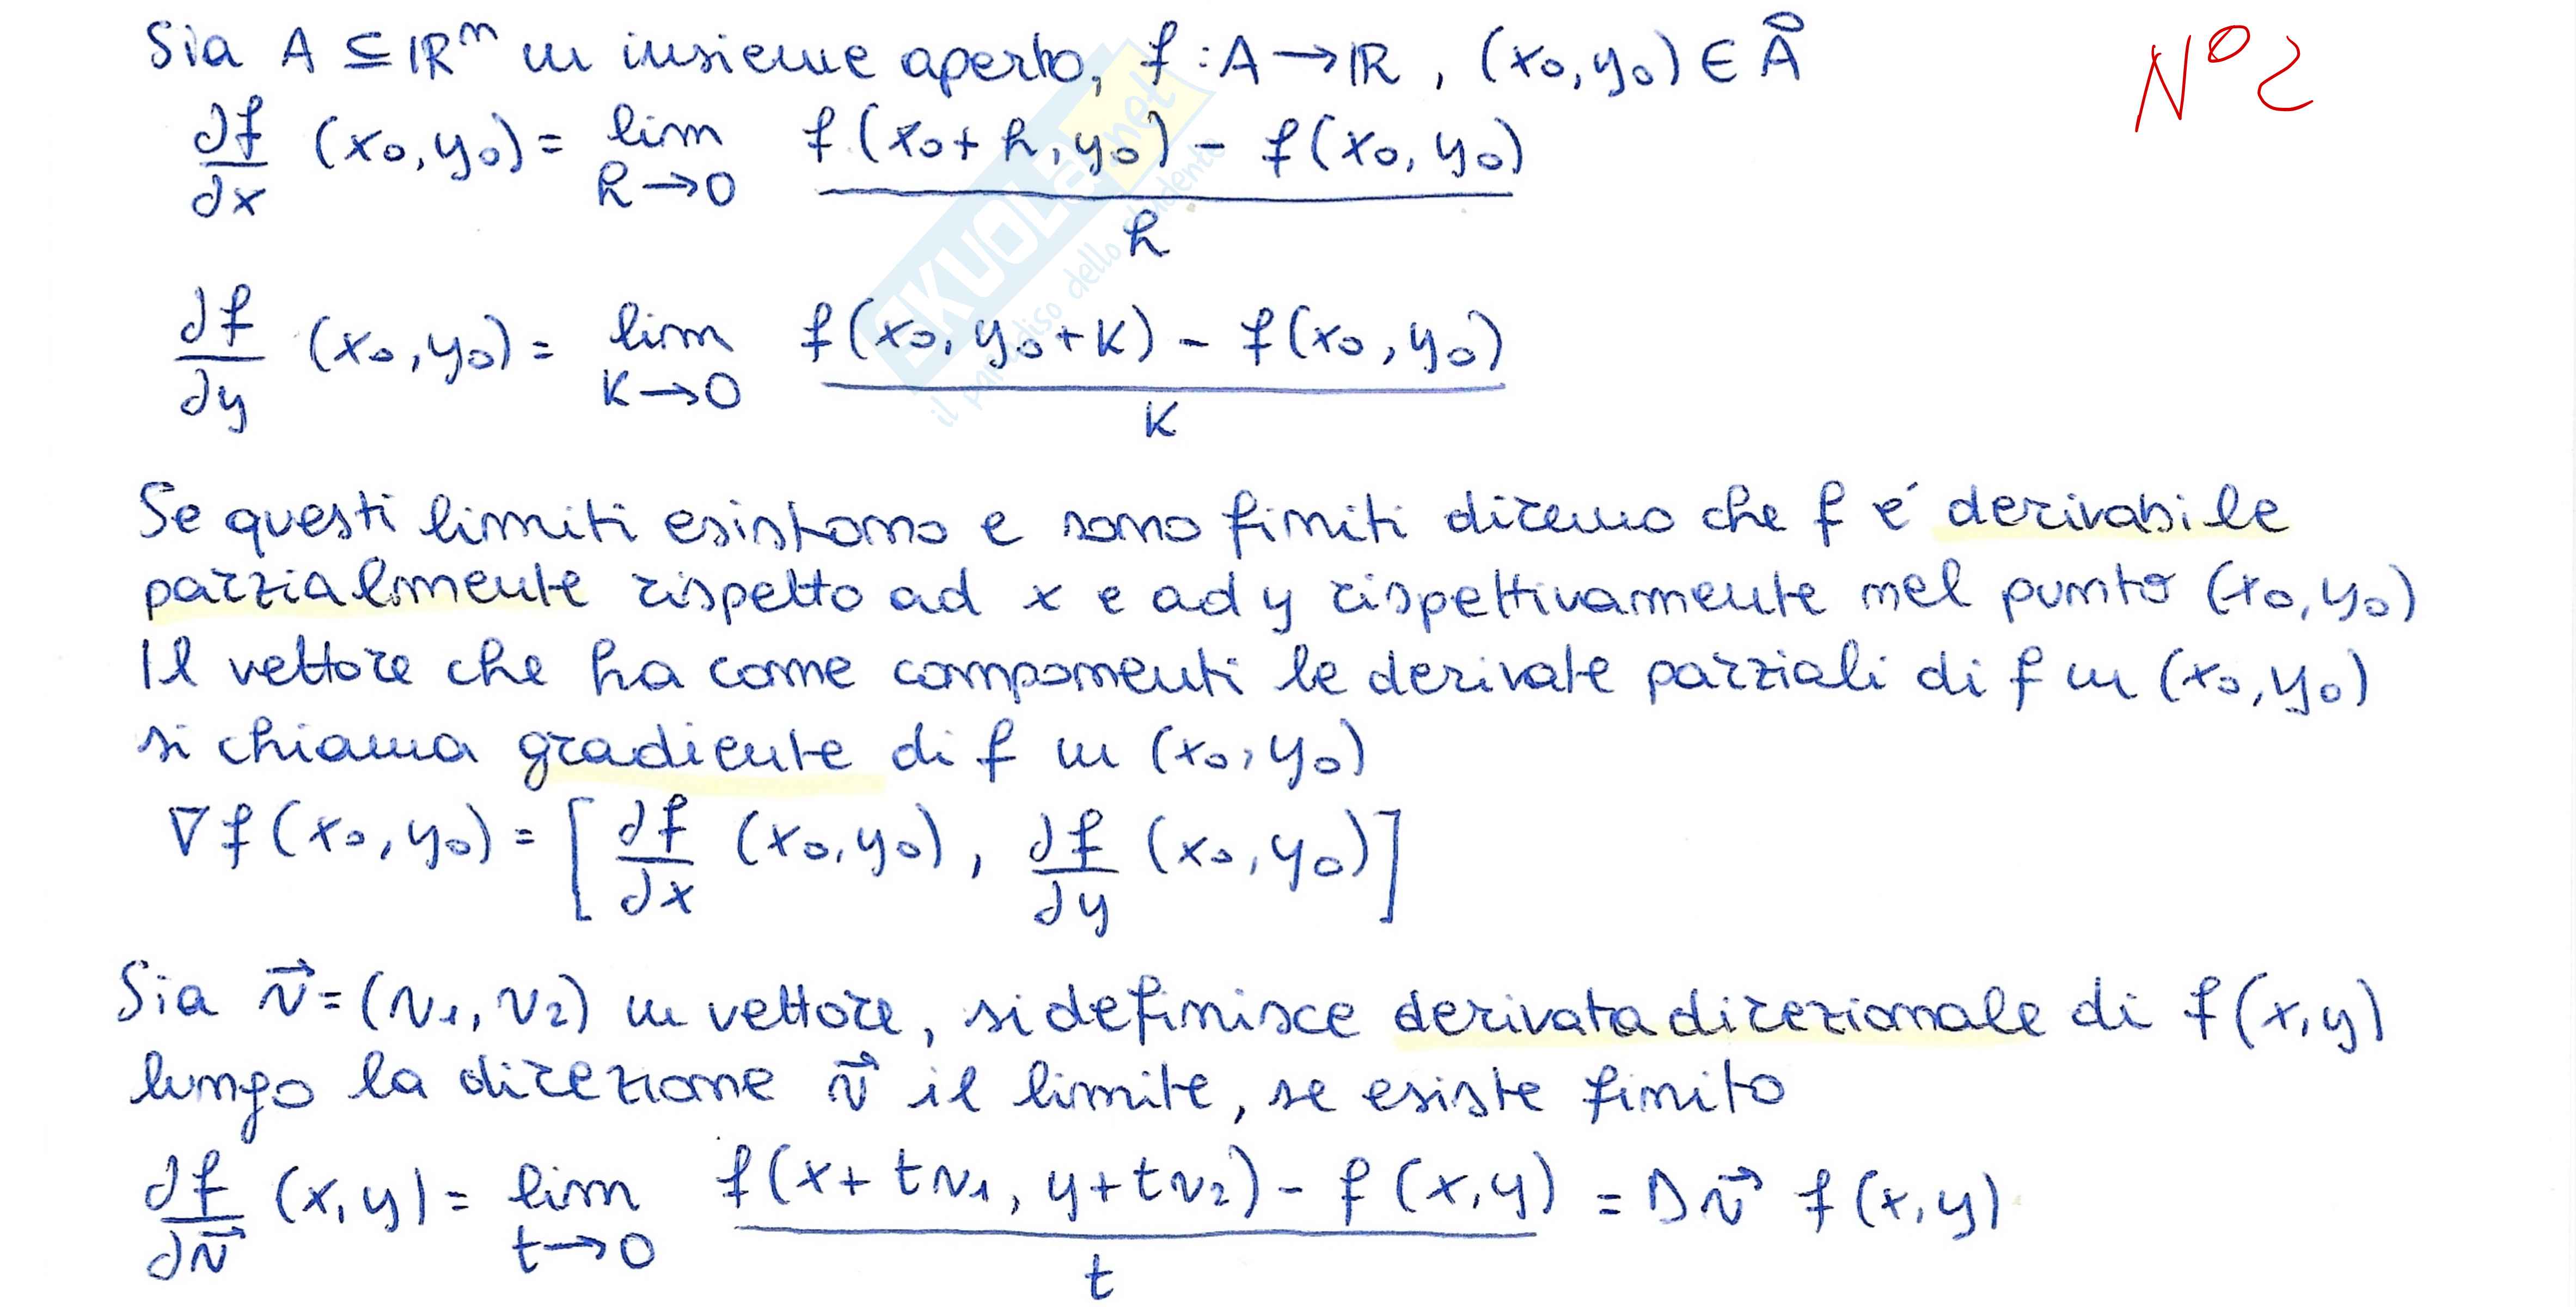 Sia A ⊆ ℝⁿ un insieme aperto, f : A → ℝ , (x₀, y₀) ∈ Å
N° 2
∂f/∂x (x₀, y₀) = lim h→0 f(x₀ + h, y₀) - f(x₀, y₀) / h
∂f/∂y (x₀, y₀) = lim K→0 f(x₀, y₀ + K) - f(x₀, y₀) / K
Se questi limiti esistono e sono finiti diremo che f é derivabile
parzialmente rispetto ad x e ad y rispettivamente nel punto (x₀, y₀)
Il vettore che ha come componenti le derivate parziali di f in (x₀, y₀)
si chiama gradiente di f in (x₀, y₀)
∇f(x₀, y₀) = [∂f/∂x (x₀, y₀), ∂f/∂y (x₀, y₀)]
Sia v⃗ = (v₁, v₂) un vettore, si definisce derivata direzionale di f(x, y)
lungo la direzione v⃗ il limite, se esiste finito
∂f/∂v⃗ (x, y) = lim t→0 f(x + tv₁, y + tv₂) - f(x, y) / t = Dv⃗ f(x, y)
SKUOLA.net
il paradiso dello studente